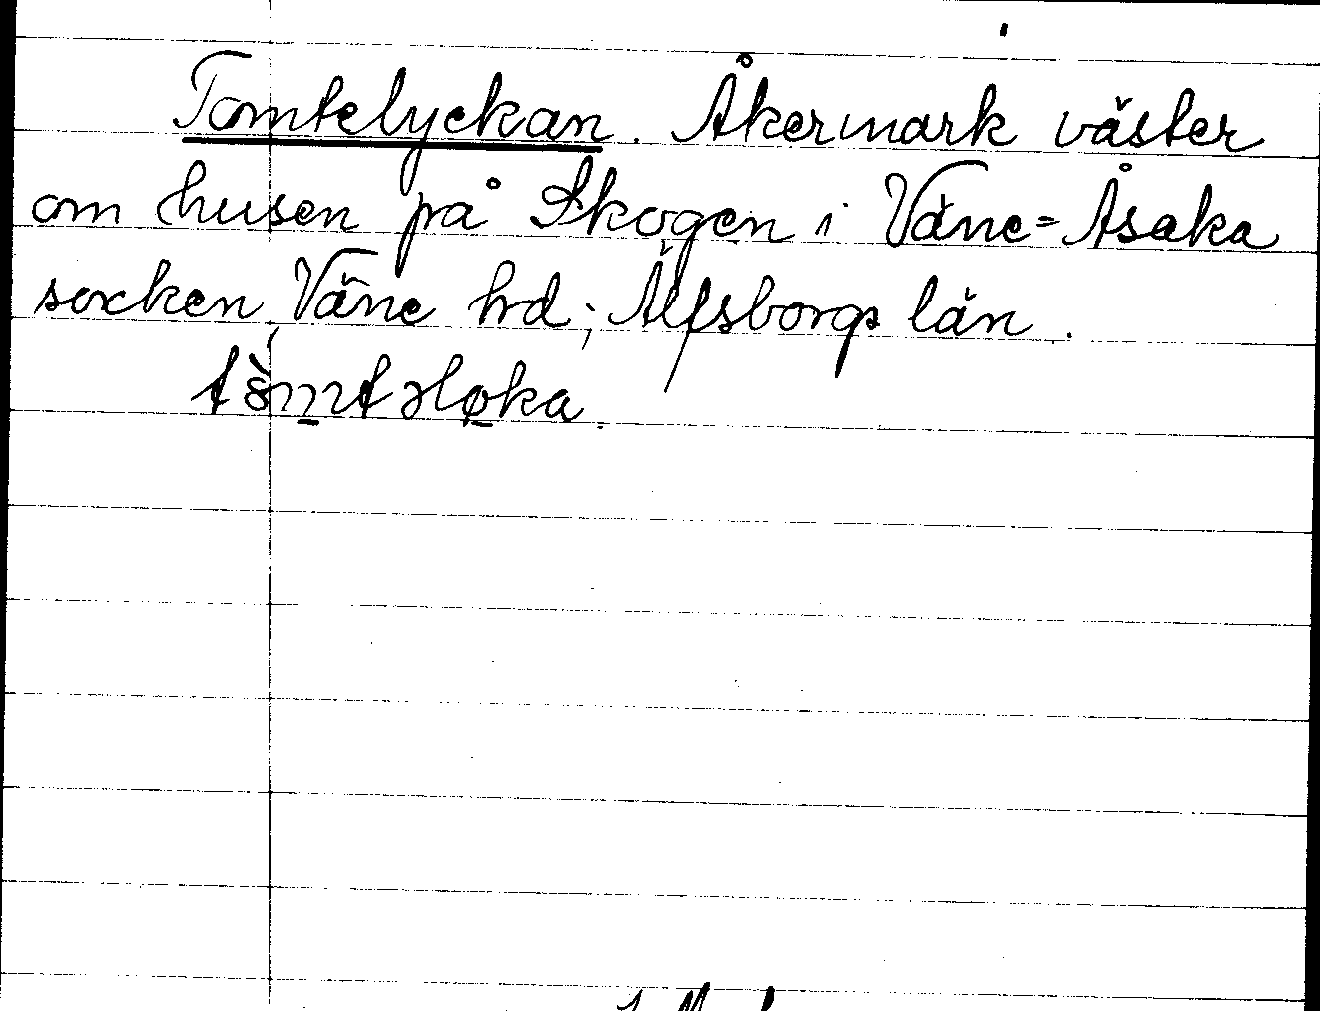 Tomtelyckan. Åkermark väster
om husen på Skogen i Väne=Åsaka
socken, Väne hrd; Älfsborgs län.